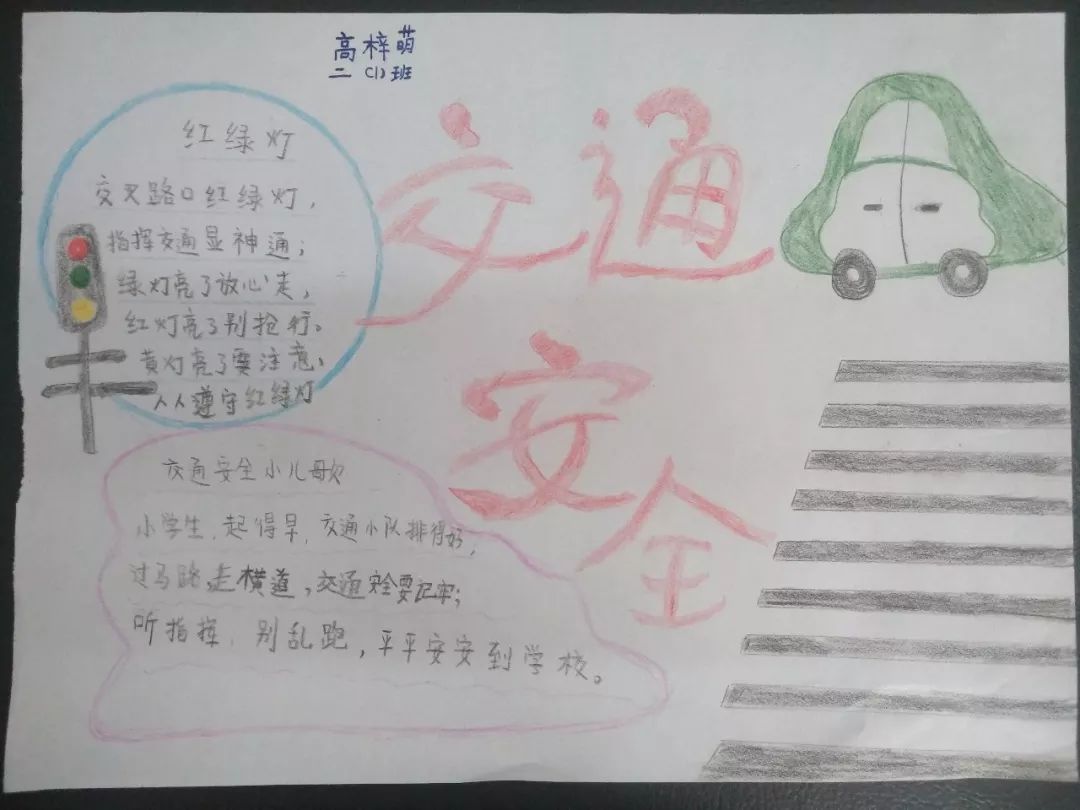 高梓萌
二(1)班
交通
安全
红绿灯
交叉路口红绿灯，
指挥交通显神通；
绿灯亮了放心走，
红灯亮了别抢行。
黄灯亮了要注意，
人人遵守红绿灯
交通安全小儿歌
小学生，起得早，交通小队排得好，
过马路，走横道，交通安全要记牢；
听指挥，别乱跑，平平安安到学校。